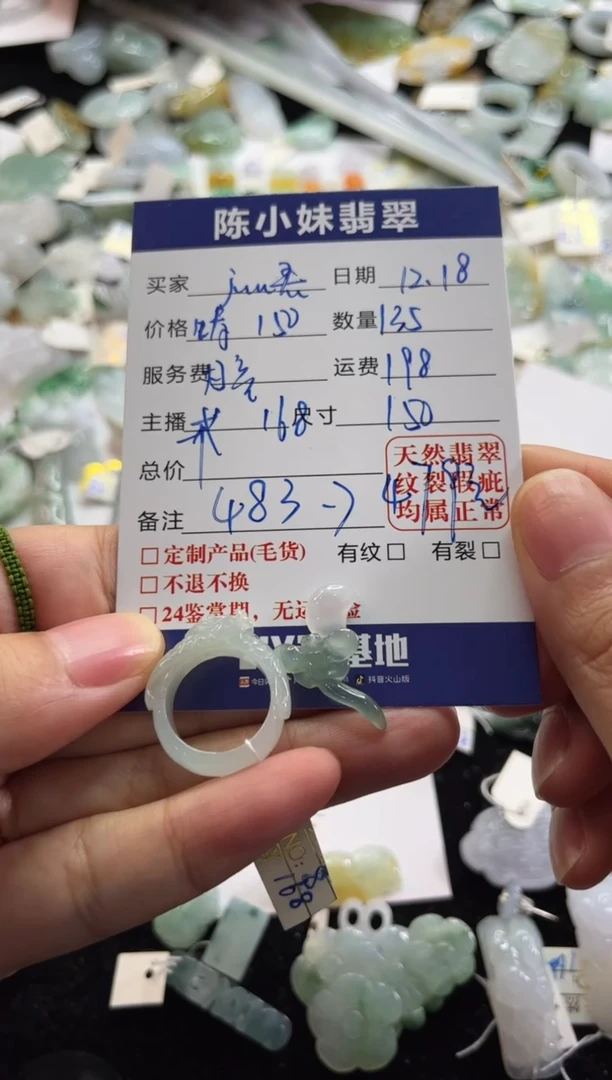 陈小妹翡翠
买家 日期 12.18
价格 150 数量 135
服务费 运费 198
主播 168 尺寸 150
总价
天然翡翠
纹裂瑕疵
均属正常
备注 483 →
□定制产品(毛货) 有纹□ 有裂□
□不退不换
□24鉴赏期，无
基地
抖音火山版
NO:
168